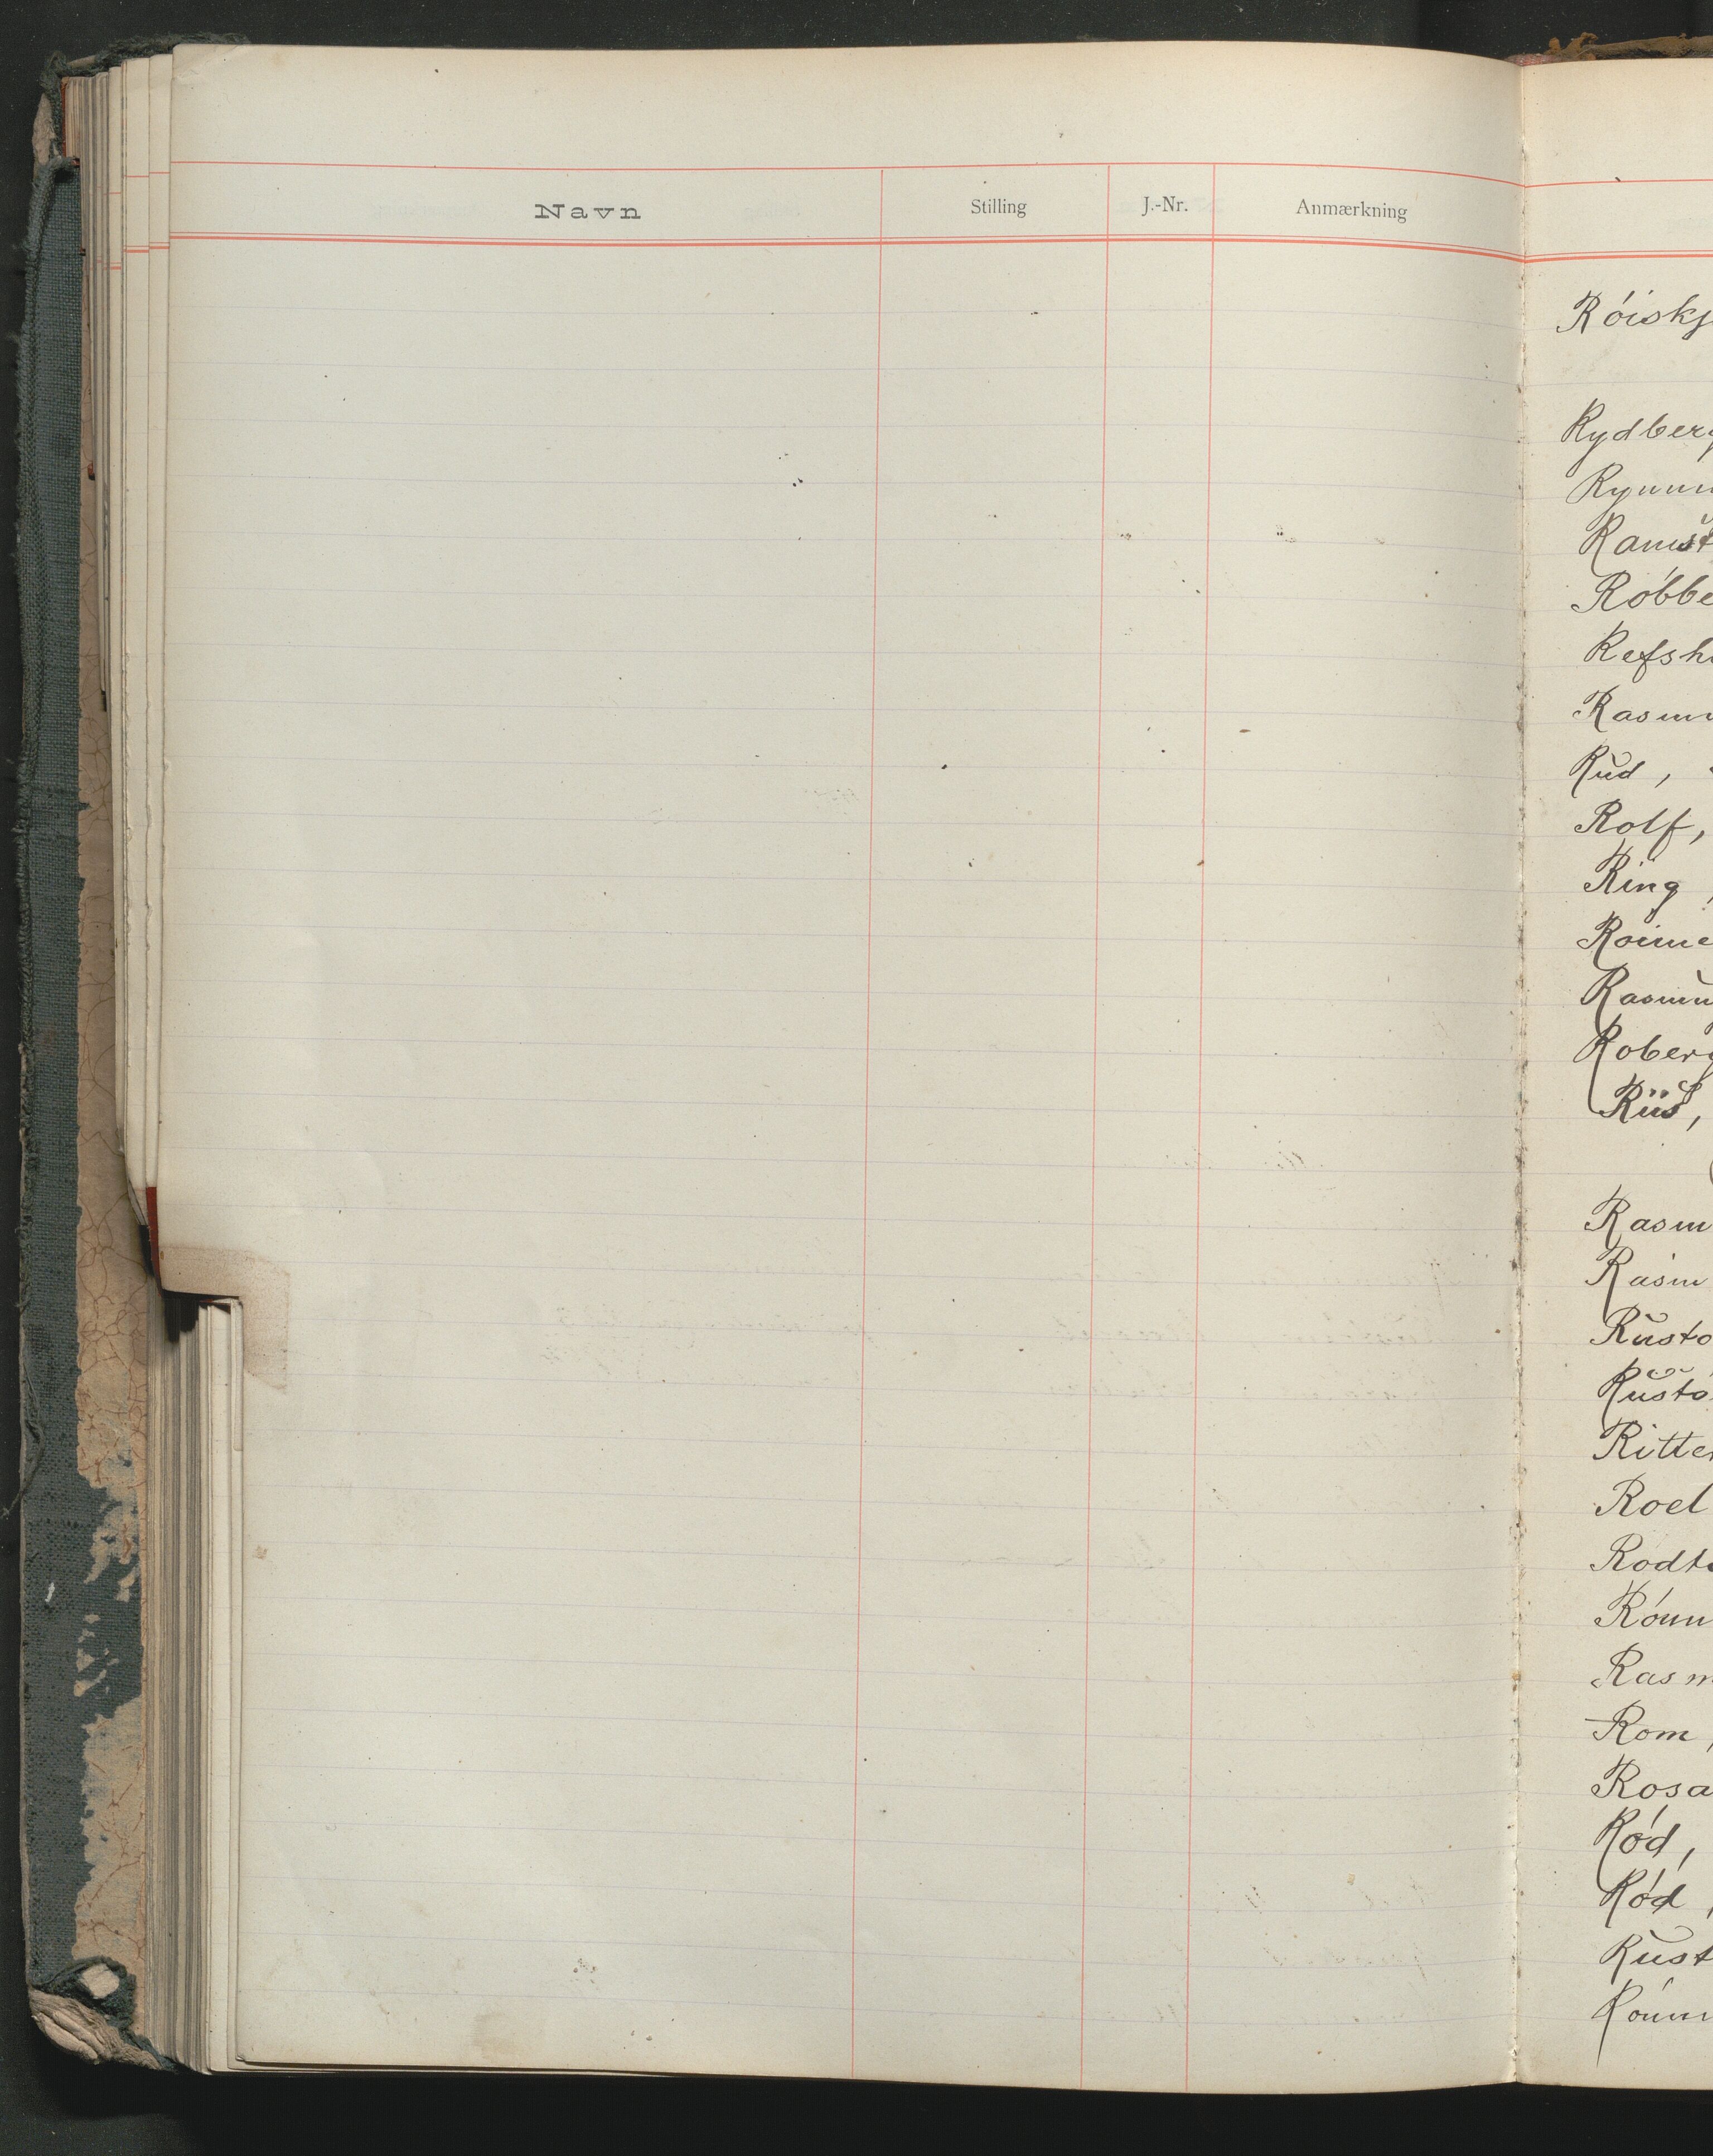 Navn Stilling J.-Nr. Anmærkning
Róiskj
Rydberg
Ramst
Róbbe
Refsh
Rasmu
Rud,
Rolf,
Ring,
Rasmu
Roberg
Riis,
Rasm
Rasm
Rusto
Rusta
Ritter
Roel
Rodt
Rónn
Rasm
Rom,
Rosa
Ród,
Ród,
Rust